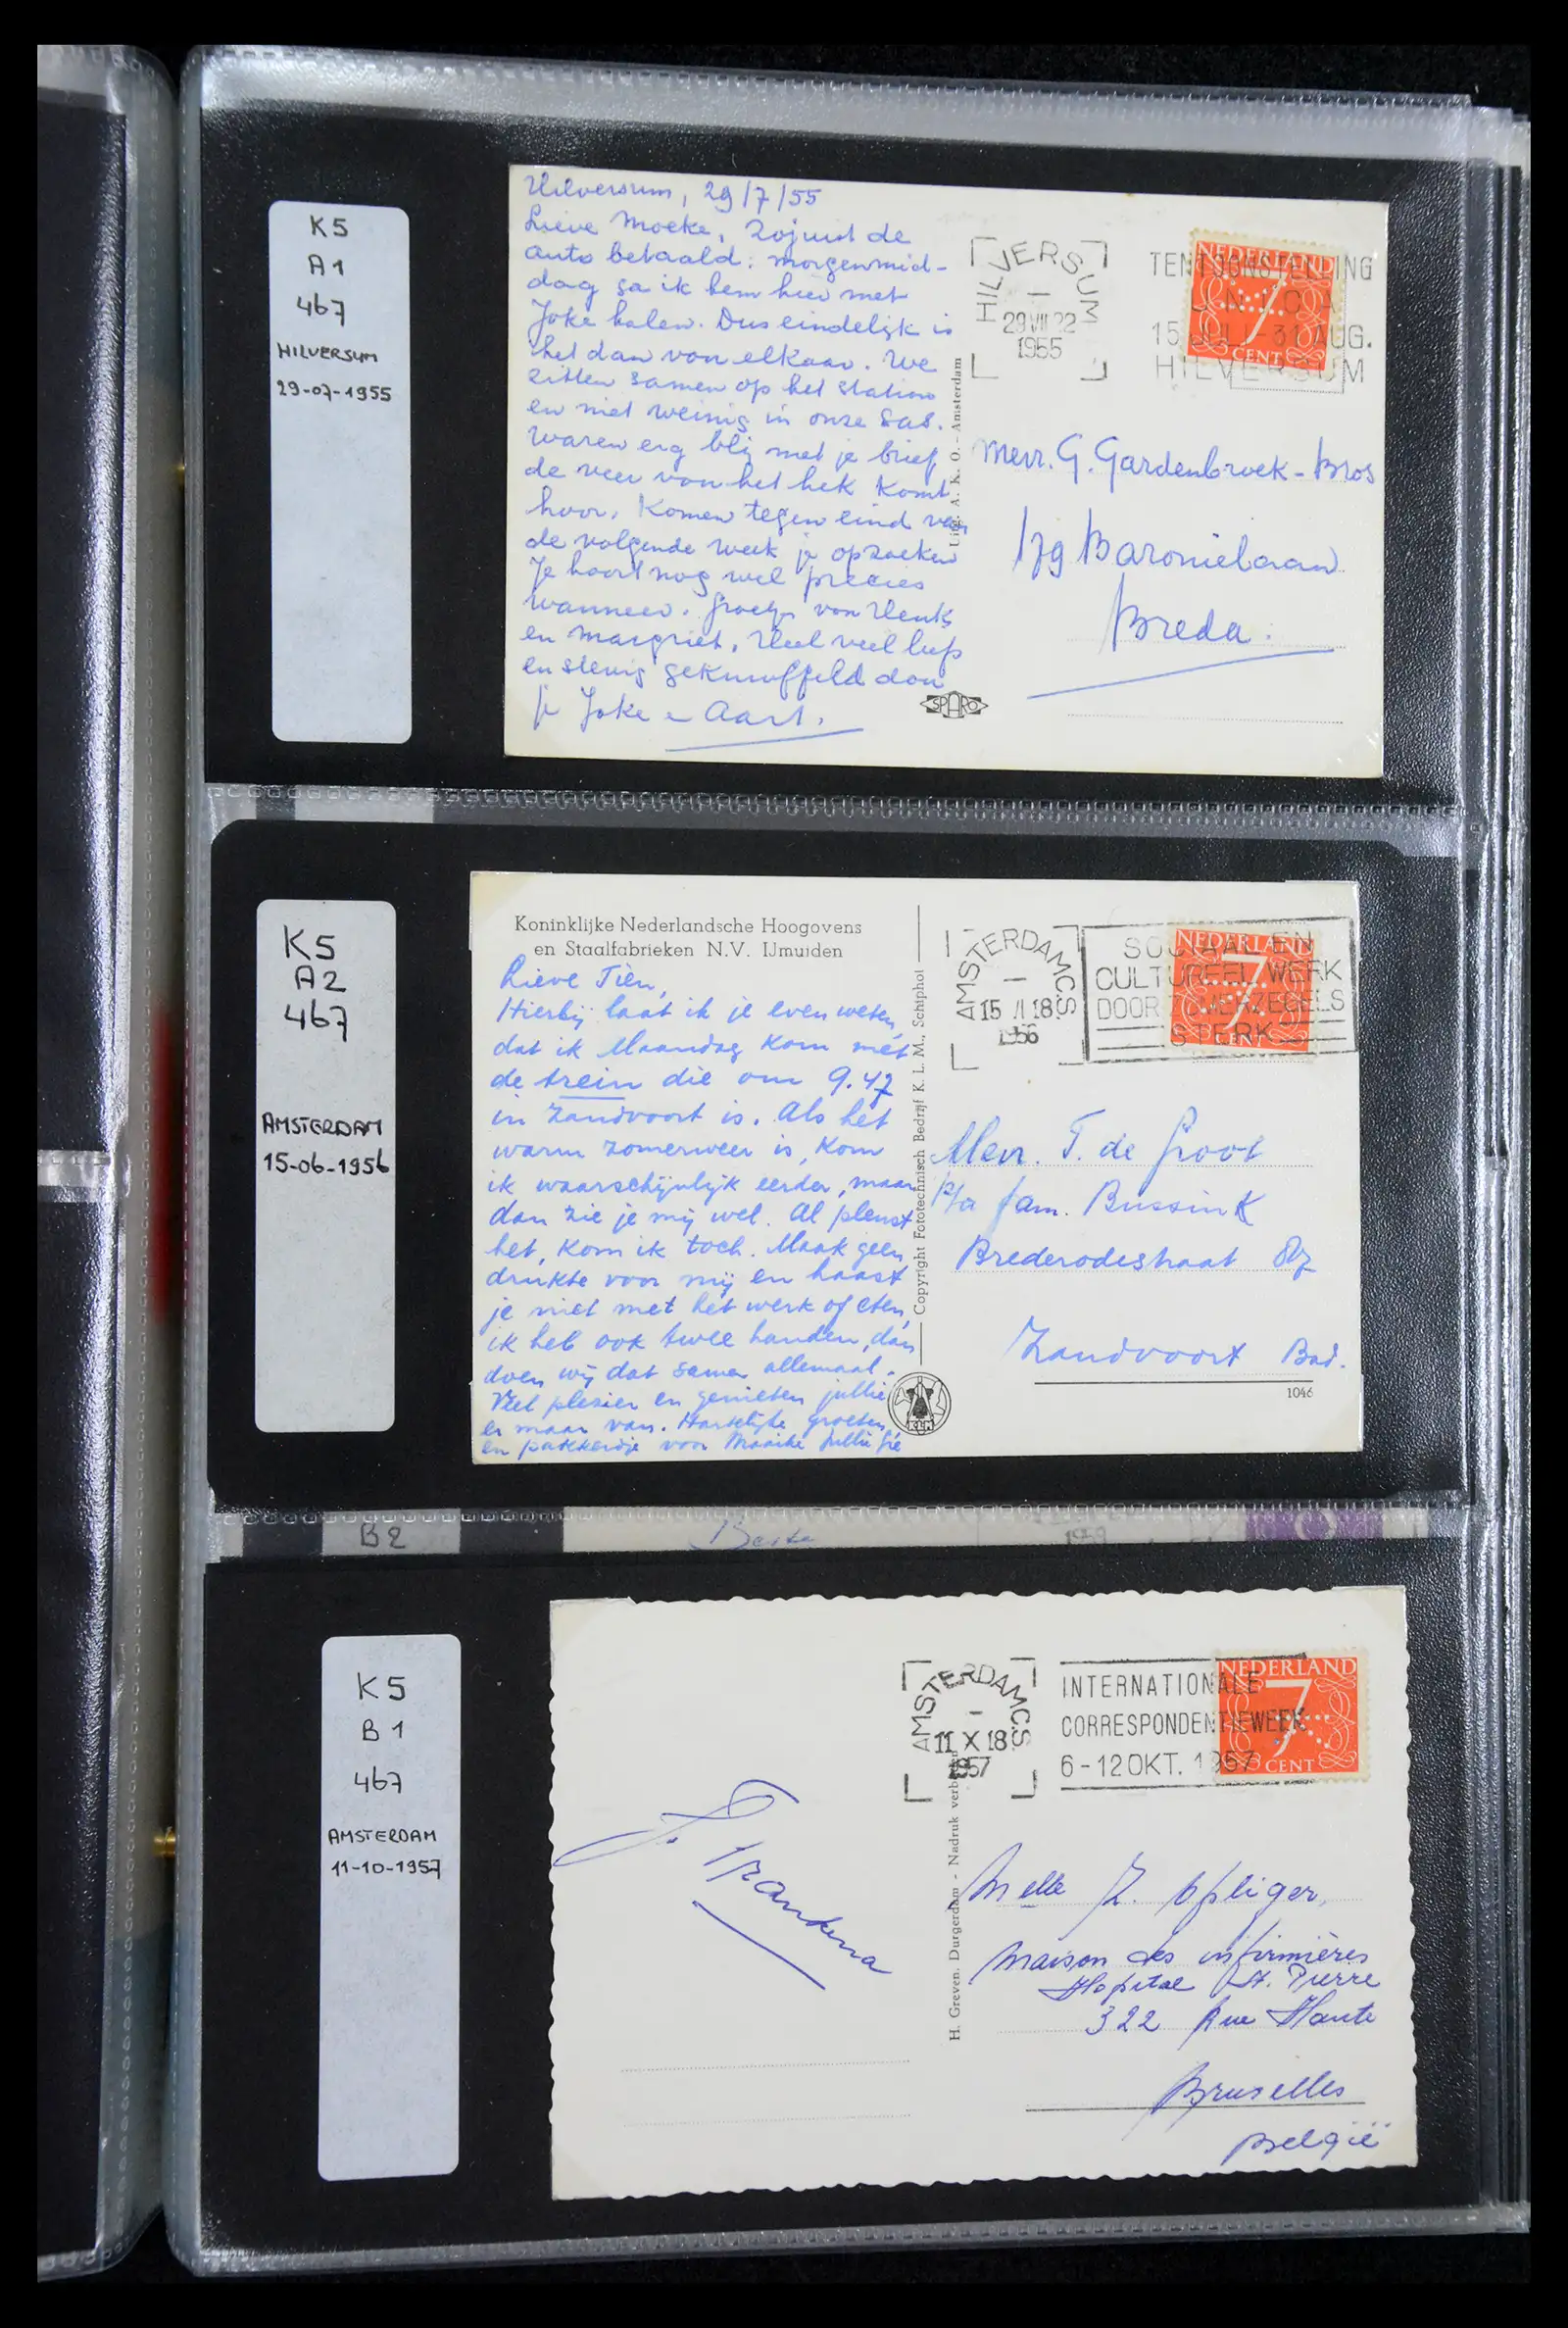 K5
A1
467
HILVERSUM
29-07-1955
Hilversum, 29/7/55
Lieve Moeke, Zojuist de
auto betaald: morgenmid-
dag ga ik hem hier met
Joke halen. Dus eindelijk is
het dan voor elkaar. We
zitten samen op het station
en niet weinig in onze sas.
Waren erg blij met je brief
de veer van het hek komt
hoor. Komen tegen eind van
de volgende week je opzoeken
Je hoort nog wel precies
wanneer. Groetjes van Henk
en Margriet. Heel veel liefs
en stevig geknuffeld door
je Joke en Aart.
Uitg. A. K. O. - Amsterdam
SPARO
HILVERSUM
29 VII 22
1955
TENTOONSTELLING
15 JULI - 31 AUG.
HILVERSUM
NEDERLAND
7
CENT
Mevr. G. Gardenbroek-Bros
179 Baronielaan
Breda.
K5
A2
467
AMSTERDAM
15-06-1956
Koninklijke Nederlandsche Hoogovens
en Staalfabrieken N.V. IJmuiden
Lieve Tien,
Hierbij laat ik je even weten,
dat ik Maandag kom met
de trein die om 9.47
in Zandvoort is. Als het
warm zomerweer is, kom
ik waarschijnlijk eerder, maar
dan zie je mij wel. Al plenst
het, kom ik toch. Maak geen
drukte voor mij en haast
je niet met het werk of eten,
ik heb ook twee handen, dan
doen wij dat samen allemaal.
Veel plezier en genieten jullie
er maar van. Hartelijke groeten,
en pakkerdje voor Maaike jullie
Copyright Fototechnisch Bedrijf K. L. M., Schiphol
KLM
AMSTERDAM C.S
15 VI 18
1956
SOCIAAL EN
CULTUREEL WERK
DOOR ZOMERZEGELS
STERK
NEDERLAND
7
CENT
Mevr. T. de Groot
P/a fam. Bussink
Brederodestraat 87
Zandvoort Bad.
1046
B2
K5
B1
467
AMSTERDAM
11-10-1957
H. Greven. Durgerdam - Nadruk verboden
AMSTERDAM C.S
11 X 18
1957
INTERNATIONALE
CORRESPONDENTIEWEEK
6-12 OKT. 1957
NEDERLAND
7
CENT
Melle Z. Opliger,
Maison des infirmières
Hopital St. Pierre
322 Rue Haute
Bruxelles
België